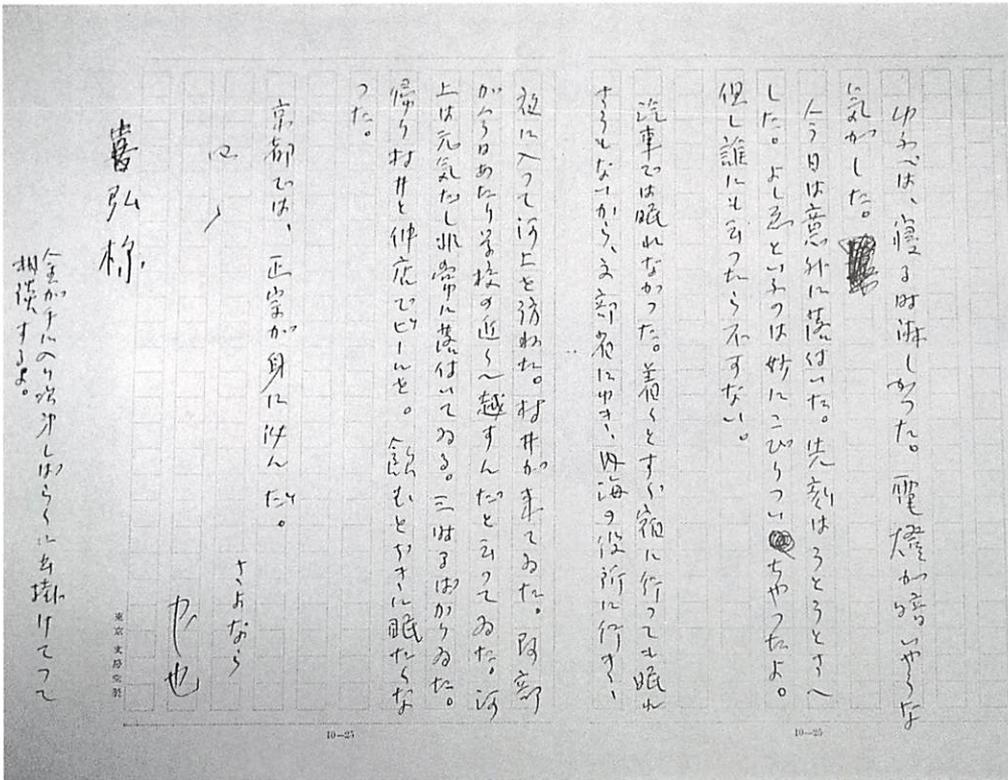 ゆふべは、寝る時淋しかつた。電燈が暗いやうな
気がした。
今日は意外に落付いた。先刻はうとうとさへ
した。よし悪といふのは妙にこびりついちやつたよ。
但し誰にも云つたら不可ない。
汽車では眠れなかつた。着くとすぐ宿に行つても眠れ
さうもないから、文部省にゆき、内海の役所に行き、
夜に入つて河上を訪ねた。村井が来てゐた。阿部
が今日あたり学校の近くへ越すんだと云つてゐた。河
上は元気だし非常に落付いてゐる。三時るばかりゐた。
帰り村井と仲店でビールを。飲むとむきに眠たくな
つた。
京都では、正宗が身に沁んだ。
さよなら
中也
喜弘様
金が手に入り次第しばらくに出掛けてつて
相談するよ。
東京文房堂製
10—25
10—25